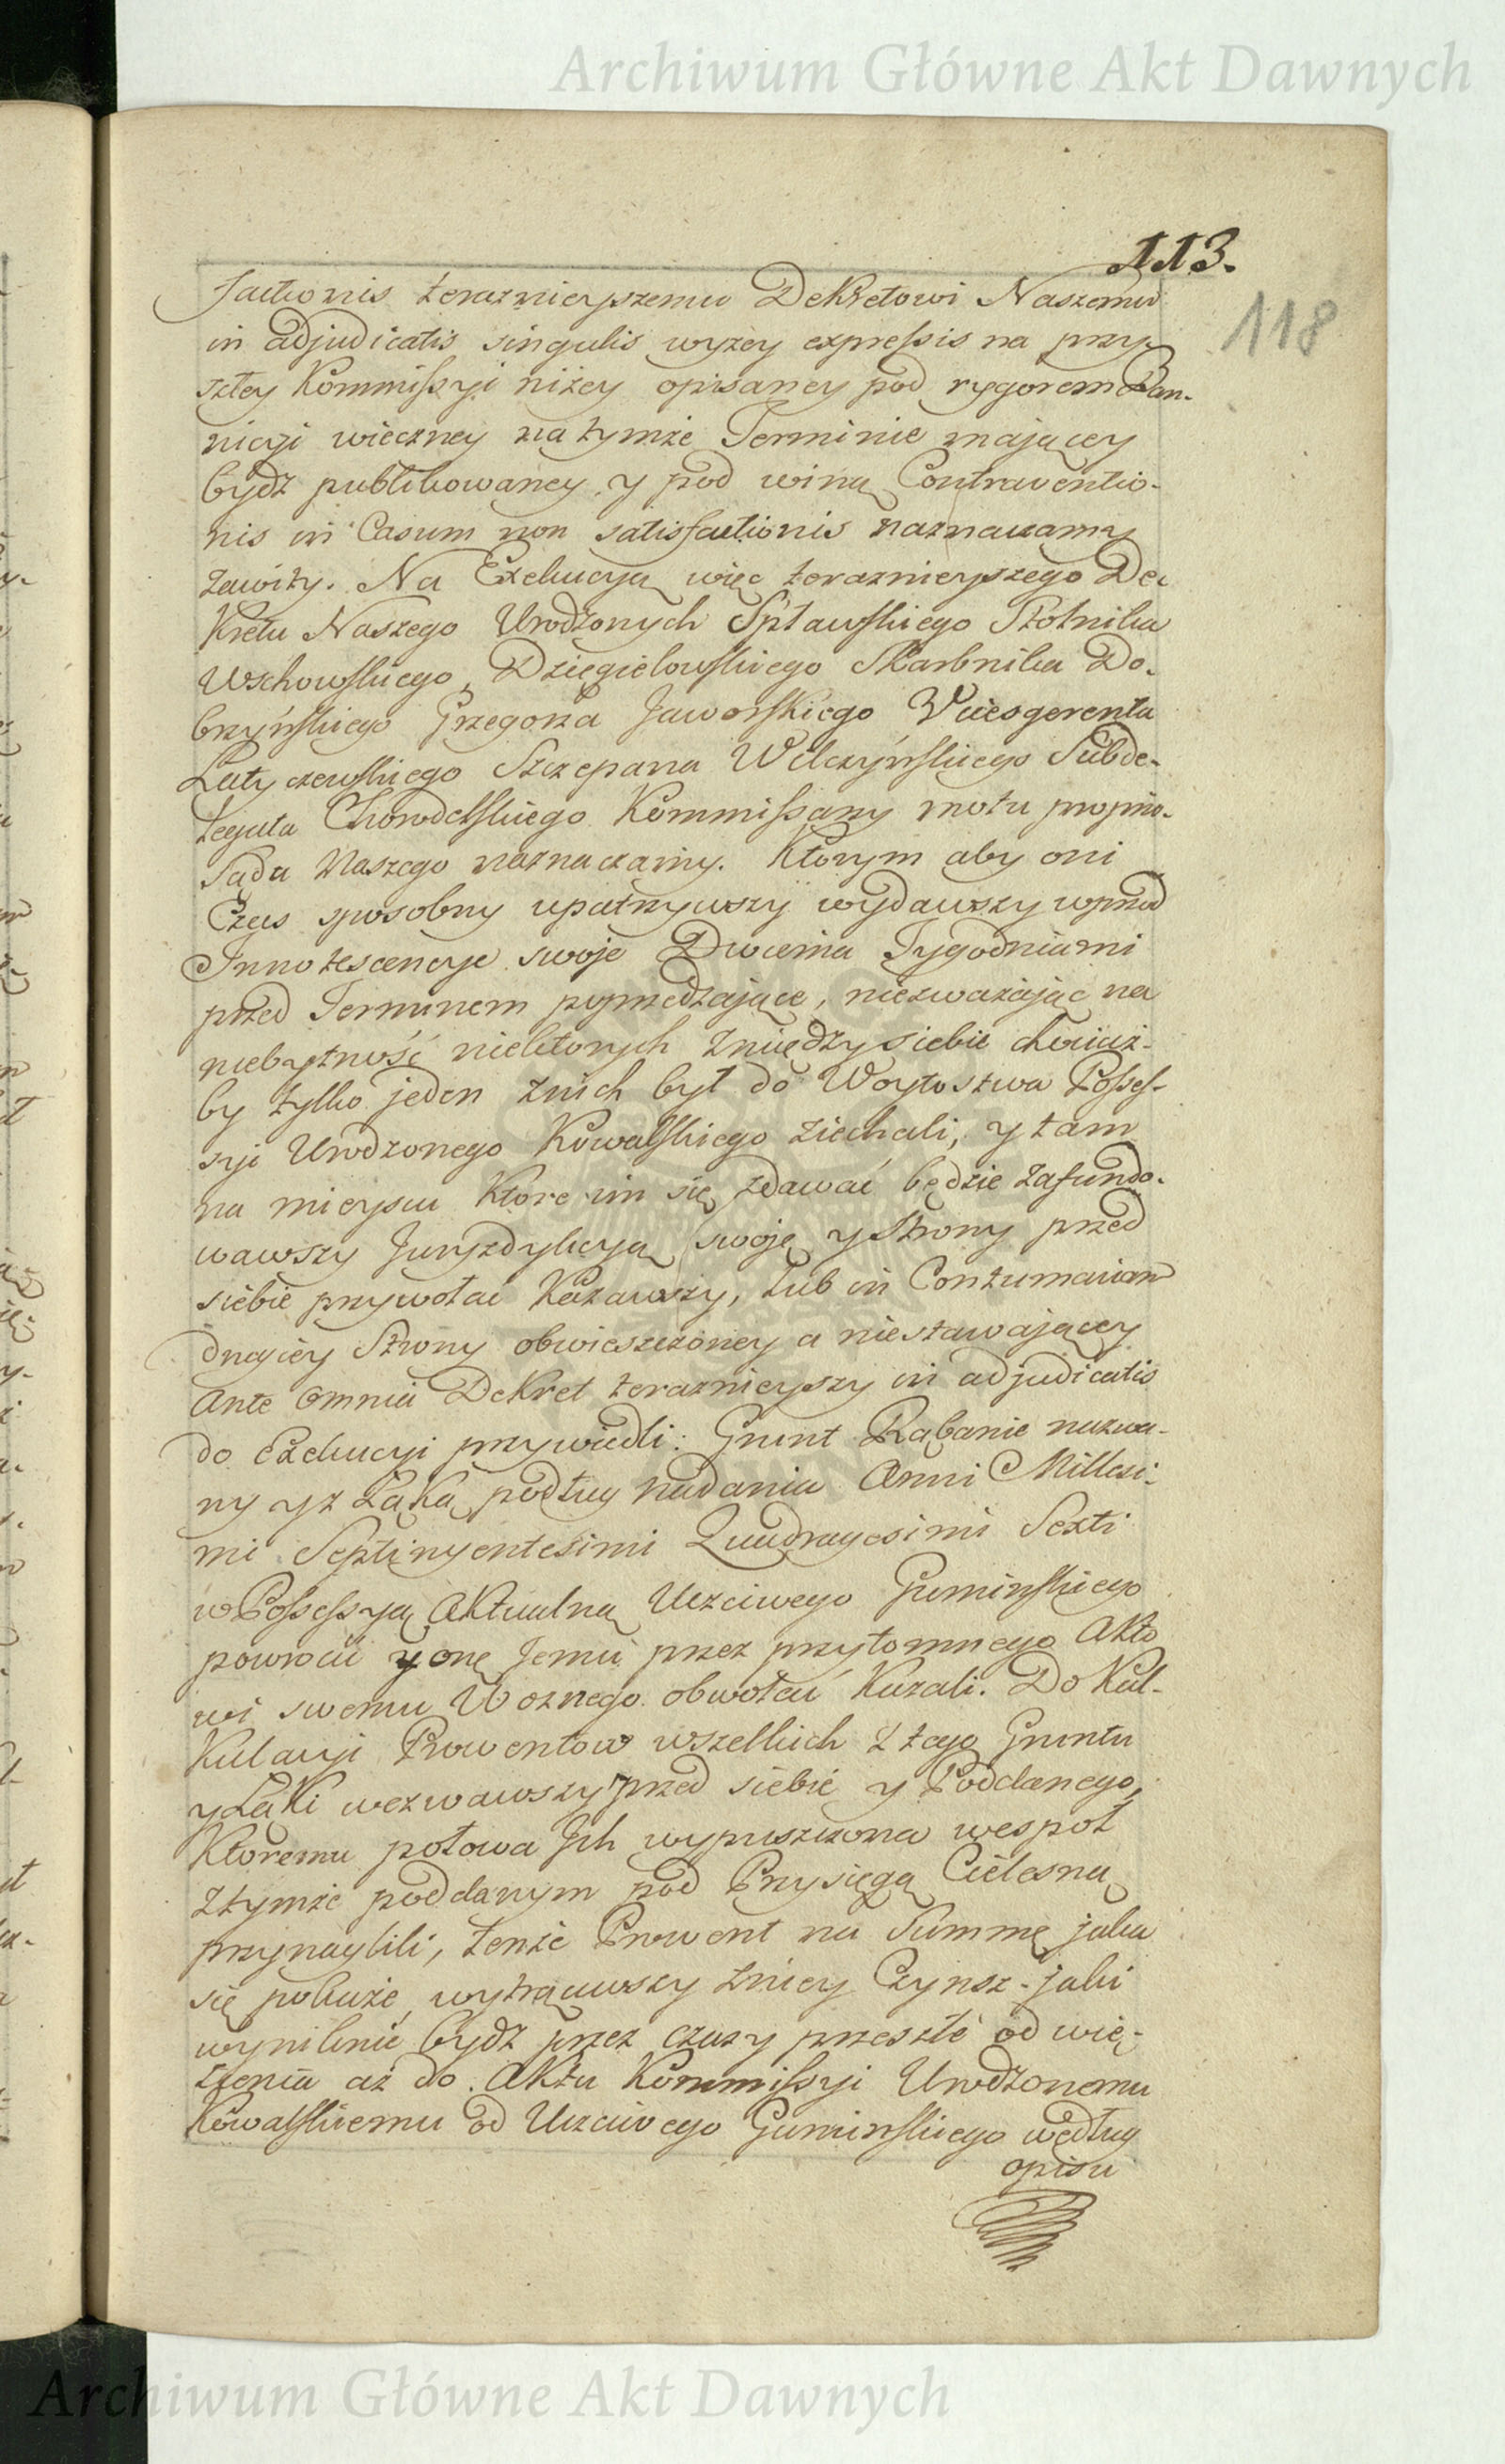 Archiwum Główne Akt Dawnych
113.
118
factionis terazniejszemu Dekretowi Naszemu
in adjudicatis singulis wyzey expressis na przy-
szłey Kommissyi niżey opisaney pod rygorem Ban-
nicyi wieczney na tymże Terminie mającey
bydź publikowaney y pod winą Contraventio-
nis in Casum non satisfactionis naznaczamy
zawity. Na Exekucyą więc teraznieyszego De-
kretu Naszego Urodzonych Spławskiego Stolnika
Wschowskiego, Dzięgielowskiego Skarbnika Do-
brzyńskiego Grzegorza Jaworskiego Vicesgerenta
Latyczewskiego Szczepana Wilczyńskiego Subde-
legata Chowdelskiego Kommissarzy motu proprio
Sądu Naszego naznaczamy. Którym aby oni
Czas sposobny upatrzywszy wydawszy wprzod
Innotescencye swoje Dwiema Tygodniami
przed Terminem poprzedzające, niezwazając na
niebytność niektorych zmiędzy siebie chociaż-
by tylko jeden znich był do Woytostwa Posses-
syi Urodzonego Kowalskiego ziechali, y tam
na mieyscu które im się zdawać będzie zafundo-
wawszy Juryzdykcyą swoję y Strony przed
siebie przywołać kazawszy, lub in Contumaciam
drugiey Strony obwieszczoney a niestawającey
ante omnia Dekret teraznieyszy in adjudicatis
do Exekucyi przywiedli: Grunt Rąbanie nazwa-
ny y z Łąką podług nadania Anni Millesi-
mi Septingentesimi Quadragesimi Sexti
w Possessyą Aktualną Uczciwego Guminskiego
powrocić y onę Jemu przez przytomnego Akto-
wi swemu Woznego obwołać kazali. Do Kal-
kulacyi Prowentow wszelkich z tego Gruntu
y Łąki wezwawszy przed siebie y Poddanego,
Ktoremu połowa Ich wypuszczona wespoł
ztymże poddanym pod Przysięgą Cielesną
przynaglili, tenże Prowent na Summę jaka
się pokaże wytrąciwszy zniey Czynsz jaki
wyniknie bydź przez czasy przeszłe od wię-
zienia aż do Aktu Kommissyi Urodzonemu
Kowalskiemu od Uczciwego Guminskiego według
opisu
Archiwum Główne Akt Dawnych